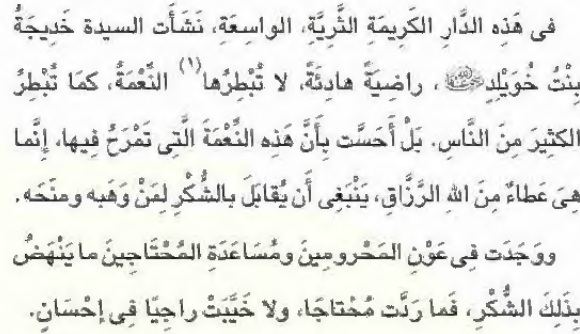 فى هَذِه الدَّارِ الكَرِيمَةِ الثَّرِيَّةِ، الواسِعَةِ، نَشَأَت السيدة خَدِيجَةُ
بِنْتُ خُوَيْلِدٍ ، راضِيَةً هادِئَةً، لا تُبْطِرُها(١) النِّعْمَةُ، كمَا تُبْطِرُ
الكَثِيرَ مِنَ النَّاسِ. بَلْ أَحَسَّت بِأَنَّ هَذِهِ النِّعْمَةَ الَّتِى تَمْرَحُ فِيها، إِنَّما
هِىَ عَطاءٌ مِنَ اللهِ الرَّزَّاقِ، يَنْبَغِى أَن يُقابَلَ بالشُّكْرِ لِمَنْ وَهَبه ومنَحَه.
ووَجَدَت فِى عَوْنِ المَحْرومِينَ ومُسَاعَدَةِ المُحْتَاجِينَ ما يَنْهَضُ
بِذَلِكَ الشُّكْرِ، فَما رَدَّت مُحْتاجًا، ولا خَيَّبَتْ راجِيًا فِى إِحْسَانٍ.